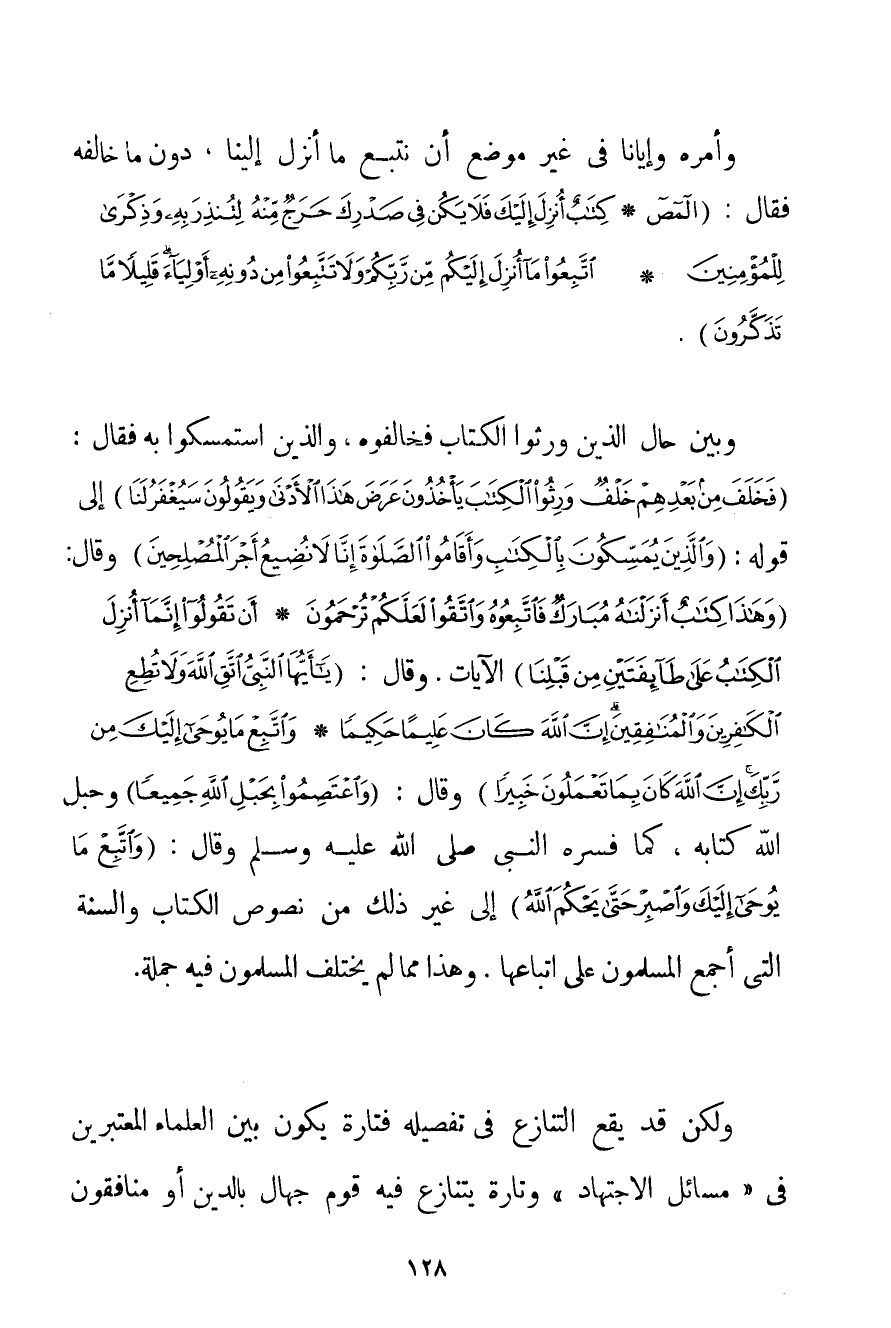 وأمره وإيانا فى غير موضع أن نتبع ما أنزل إلينا ، دون ما خالفه
فقال : (الٓمٓصٓ * كِتَٰبٌ أُنزِلَ إِلَيْكَ فَلَا يَكُن فِى صَدْرِكَ حَرَجٌ مِّنْهُ لِتُنذِرَ بِهِۦ وَذِكْرَىٰ
لِلْمُؤْمِنِينَ * ٱتَّبِعُوا۟ مَآ أُنزِلَ إِلَيْكُم مِّن رَّبِّكُمْ وَلَا تَتَّبِعُوا۟ مِن دُونِهِۦٓ أَوْلِيَآءَ ۗ قَلِيلًا مَّا
تَذَكَّرُونَ) .
وبين حال الذين ورثوا الكتاب فخالفوه ، والذين استمسكوا به فقال :
(فَخَلَفَ مِنۢ بَعْدِهِمْ خَلْفٌ وَرِثُوا۟ ٱلْكِتَٰبَ يَأْخُذُونَ عَرَضَ هَٰذَا ٱلْأَدْنَىٰ وَيَقُولُونَ سَيُغْفَرُ لَنَا) إلى
قوله : (وَٱلَّذِينَ يُمَسِّكُونَ بِٱلْكِتَٰبِ وَأَقَامُوا۟ ٱلصَّلَوٰةَ إِنَّا لَا نُضِيعُ أَجْرَ ٱلْمُصْلِحِينَ) وقال:
(وَهَٰذَا كِتَٰبٌ أَنزَلْنَٰهُ مُبَارَكٌ فَٱتَّبِعُوهُ وَٱتَّقُوا۟ لَعَلَّكُمْ تُرْحَمُونَ * أَن تَقُولُوٓا۟ إِنَّمَآ أُنزِلَ
ٱلْكِتَٰبُ عَلَىٰ طَآئِفَتَيْنِ مِن قَبْلِنَا) الآيات . وقال : (يَٰٓأَيُّهَا ٱلنَّبِىُّ ٱتَّقِ ٱللَّهَ وَلَا تُطِعِ
ٱلْكَٰفِرِينَ وَٱلْمُنَٰفِقِينَ ۗ إِنَّ ٱللَّهَ كَانَ عَلِيمًا حَكِيمًا * وَٱتَّبِعْ مَا يُوحَىٰٓ إِلَيْكَ مِن
رَّبِّكَ ۚ إِنَّ ٱللَّهَ كَانَ بِمَا تَعْمَلُونَ خَبِيرًا) وقال : (وَٱعْتَصِمُوا۟ بِحَبْلِ ٱللَّهِ جَمِيعًا) وحبل
الله كتابه ، كما فسره النبى صلى الله عليه وسلم وقال : (وَٱتَّبِعْ مَا
يُوحَىٰٓ إِلَيْكَ وَٱصْبِرْ حَتَّىٰ يَحْكُمَ ٱللَّهُ) إلى غير ذلك من نصوص الكتاب والسنة
التى أجمع المسلمون على اتباعها . وهذا مما لم يختلف المسلمون فيه جملة.
ولكن قد يقع التنازع فى تفصيله فتارة يكون بين العلماء المعتبرين
فى « مسائل الاجتهاد » وتارة يتنازع فيه قوم جهال بالدين أو منافقون
١٢٨